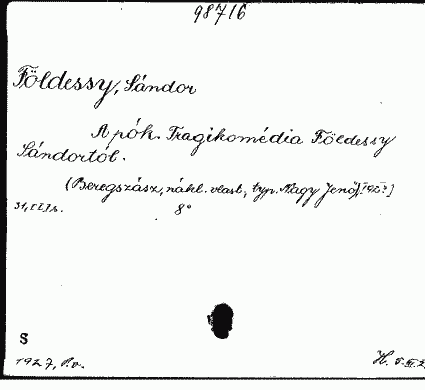 98716
Földessy, Sándor
A pók. Tragikomédia Földessy
Sándortól.
(Beregszász, nákl. vlast., typ. Nagy Jenő,[192?]
31, [I] s. 8°
S
1927, P.v.